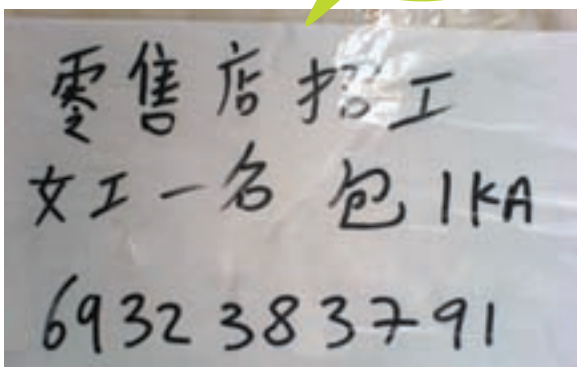 零售店招工
女工一名 包 IKA
6932383791